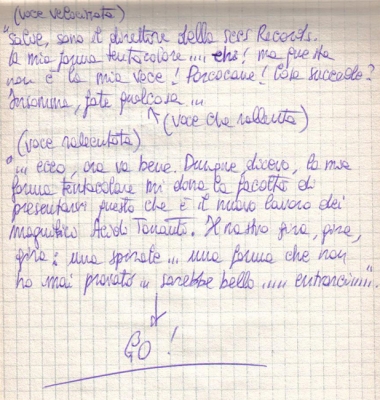 (voce velocizzata)
"Salve, sono il direttore della sess Records.
la mia forma tentacolare .... ehi! ma questa
non è la mia voce! Porcocane! Cosa succede?
Insomma, fate qualcosa ...
(voce che rallenta)
(voce rallentata)
"... ecco, ora va bene. Dunque, dicevo, la mia
forma tentacolare mi dona la facoltà di
presentarvi questo che è il nuovo lavoro dei
magnifico Acidi Tonanti. Il nastro gira, gira,
gira: una spirale ... una forma che non
ho mai provato ... sarebbe bello ..... entrarci ....".
GO!